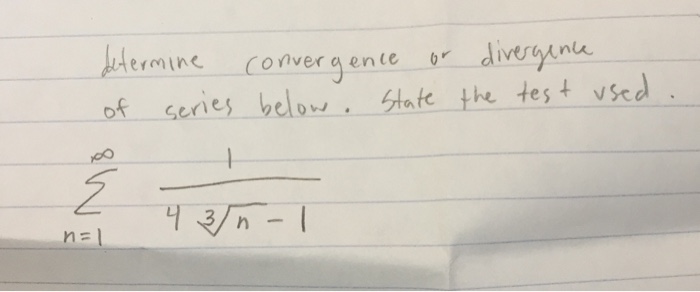 determine convergence or divergence
of series below. State the test used.
∞
Σ 1 / (4 ∛n - 1)
n=1